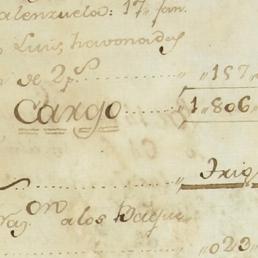 alenzuela: 17,, fan.
Luis havonadas
de 2 p.s ,,187,,
Cargo 1,,806,,
Trig
on a los Bagu
,,023,,